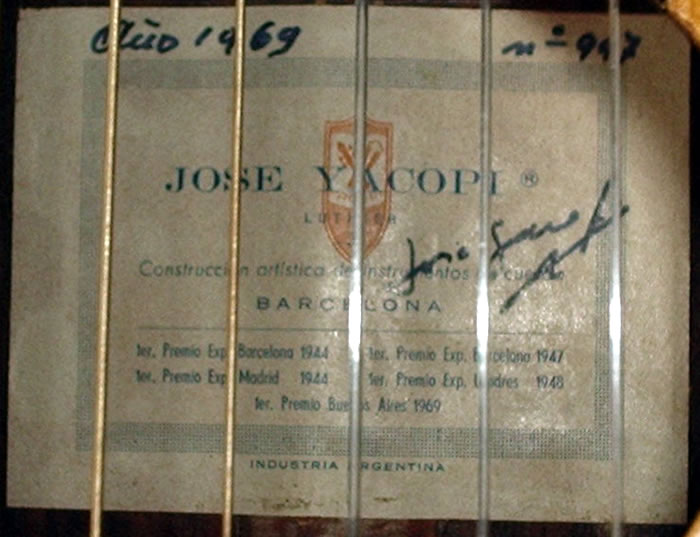 Año 1969 nº 997
JOSE YACOPI ®
LUTHIER
Construcción artística de instrumentos de cuerda
BARCELONA
1er. Premio Exp. Barcelona 1944 1er. Premio Exp. Barcelona 1947
1er. Premio Exp. Madrid 1944 1er. Premio Exp. Londres 1948
1er. Premio Buenos Aires 1969
INDUSTRIA ARGENTINA